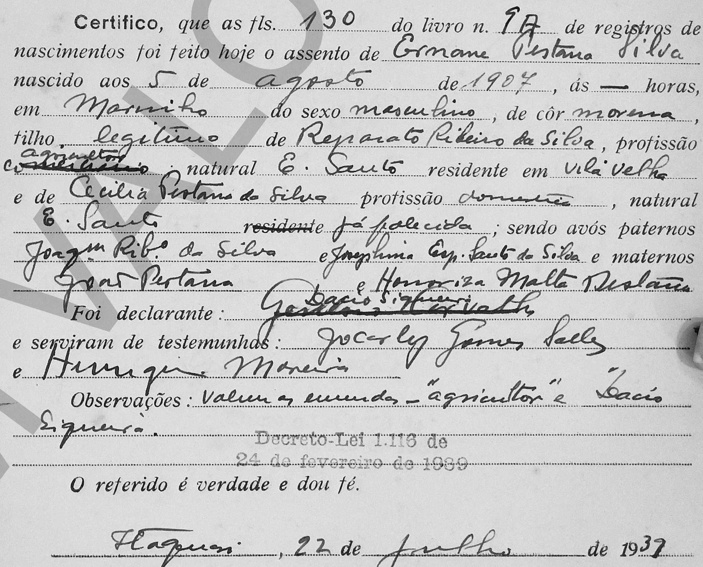 Certifico, que as fls. 130 do livro n. 9A de registros de
nascimentos foi feito hoje o assento de Ernane Pestana Silva
nascido aos 5 de agosto de 1907, ás — horas,
em Marinho do sexo masculino, de côr morena,
filho legitimo de Reparato Ribeiro da Silva, profissão
agricultor
natural E. Santo residente em Vila Velha
e de Cecilia Pestana da Silva profissão domestica, natural
E. Santo residente já falecida; sendo avós paternos
Joaqm Ribº da Silva e Josephina Esp. Santo da Silva e maternos
João Pestana e Honoriza Malta Pestana
Dacio Siqueira
Foi declarante:
e serviram de testemunhas: Jocarly Gomes Salles
e Henrique Moreira
Observações: Valem as emendas - "agricultor" e "Dacio
Siqueira.
Decreto-Lei 1.116 de
24 de fevereiro de 1939
O referido é verdade e dou fé.
Itaquari, 22 de julho de 1939